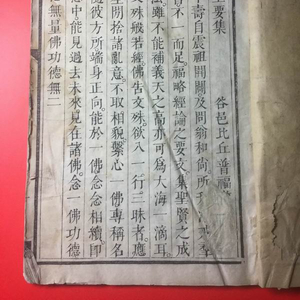 要集
谷邑比丘普福
壽自震祖開闢及問翁和尚所
皆不一而足福略經論之要文集聖賢之成
法雖不能補義天之高亦可為大海一滴耳
文殊般若經佛告文殊欲入一行三昧者應
空閒捨諸亂意不取相貌繫心一佛專稱名
隨彼方所端身正向能於一佛念念相續即
念中能見過去未來見在諸佛念一佛功德
無量佛功德無二